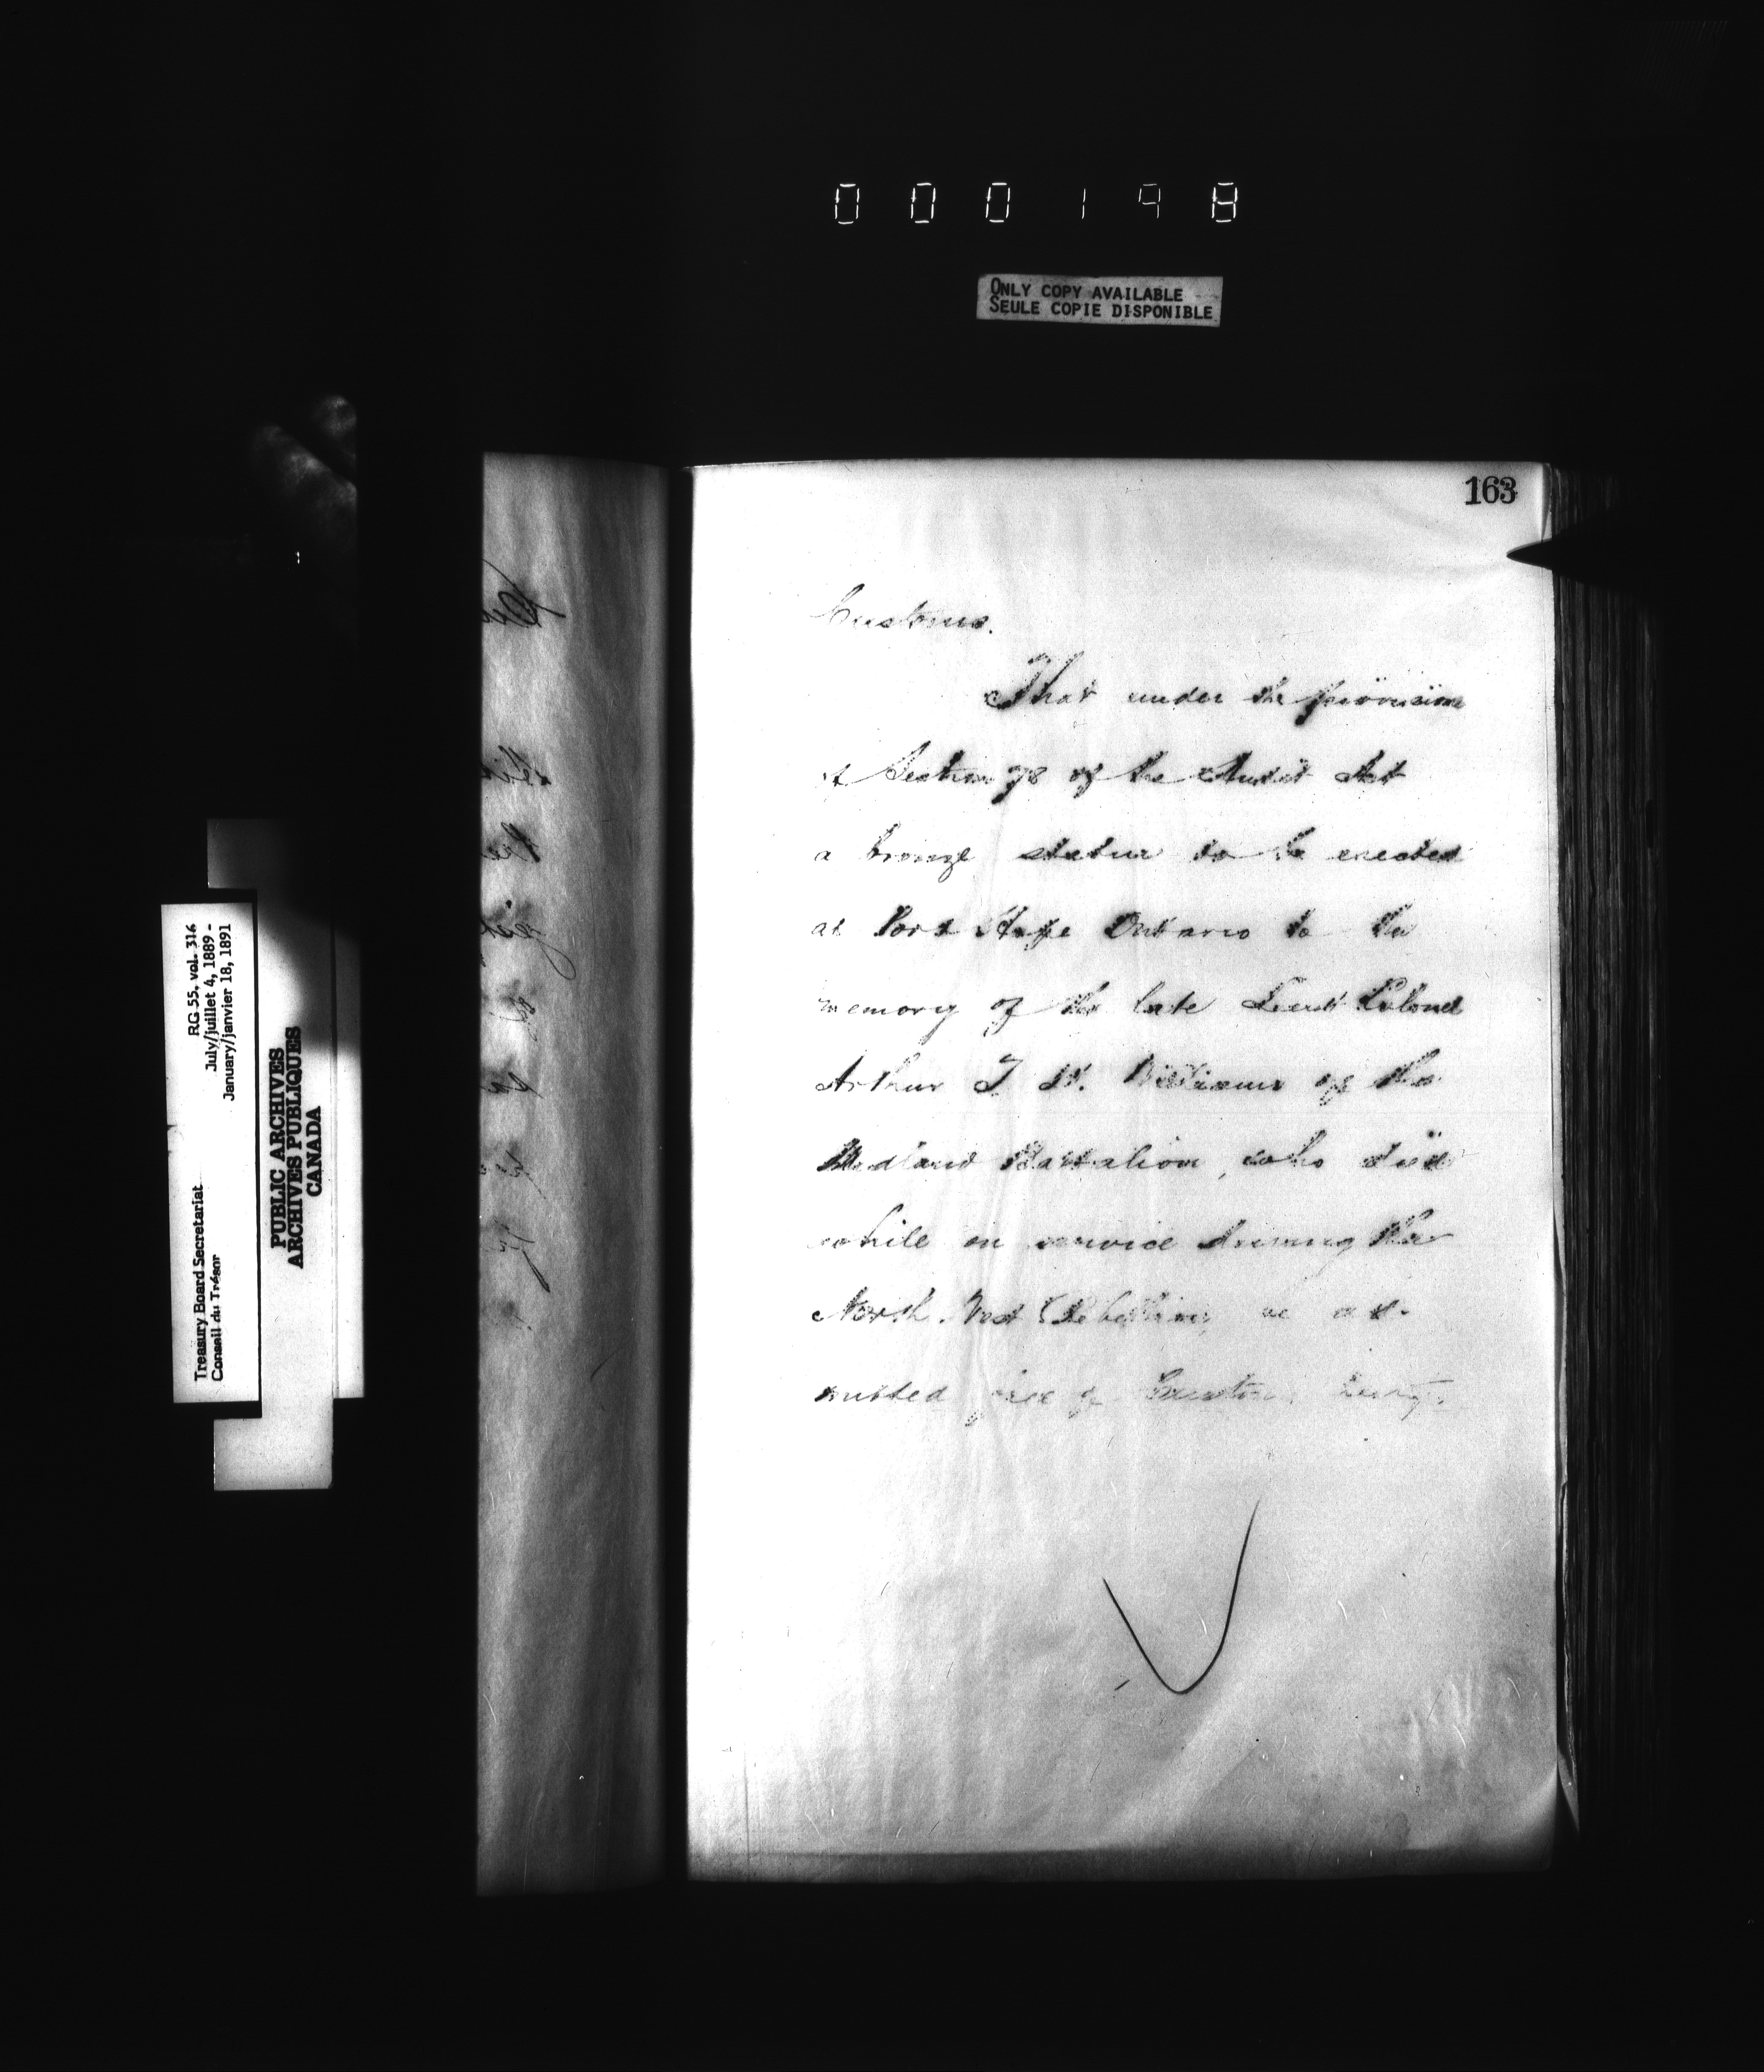 000198
ONLY COPY AVAILABLE
SEULE COPIE DISPONIBLE
163
Customs.
That under the provisions
of Section 78 of the Audit Act
a bronze statue to be erected
at Port Hope Ontario to the
memory of the late Lieut Colonel
Arthur T. H. Williams of the
Midland Battalion, who died
while on service during the
North. West Rebellion, be ad-
mitted free of Customs duty.
Treasury Board Secretariat
Conseil du Trésor
RG 55, vol. 316
July/juillet 4, 1889 -
January/janvier 18, 1891
PUBLIC ARCHIVES
ARCHIVES PUBLIQUES
CANADA